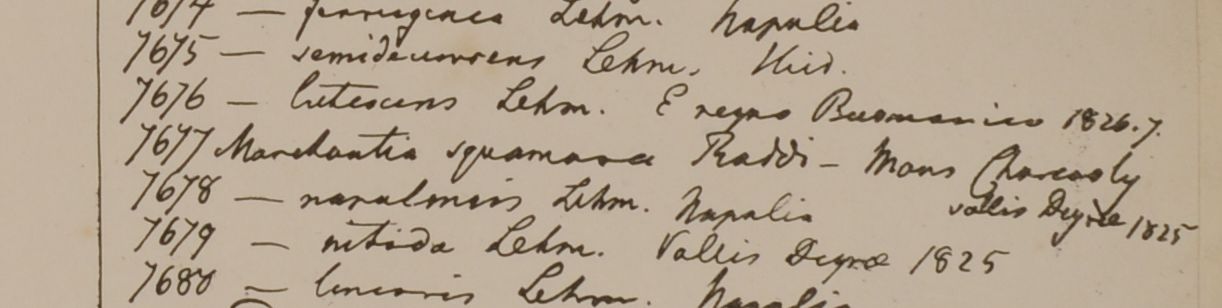 7674 — ferruginea Lehm. Napalia
7675 — semidecurrens Lehm. Ibid.
7676 — lutescens Lehm. E regno Burmanico 1826.7.
7677 Marchantia squamosa Raddi — Mons Charcoaly
vallis Deyræ 1825
7678 — napalensis Lehm. Napalia
7679 — nitida Lehm. Vallis Deyræ 1825
7680 — linearis Lehm. Napalia